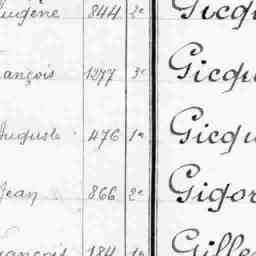 Eugène 844 2e Gicqu
François 1277 3e Gicqu
Auguste 476 1e Gicqu
Jean 866 2e Gigor
François 184 1e Gille